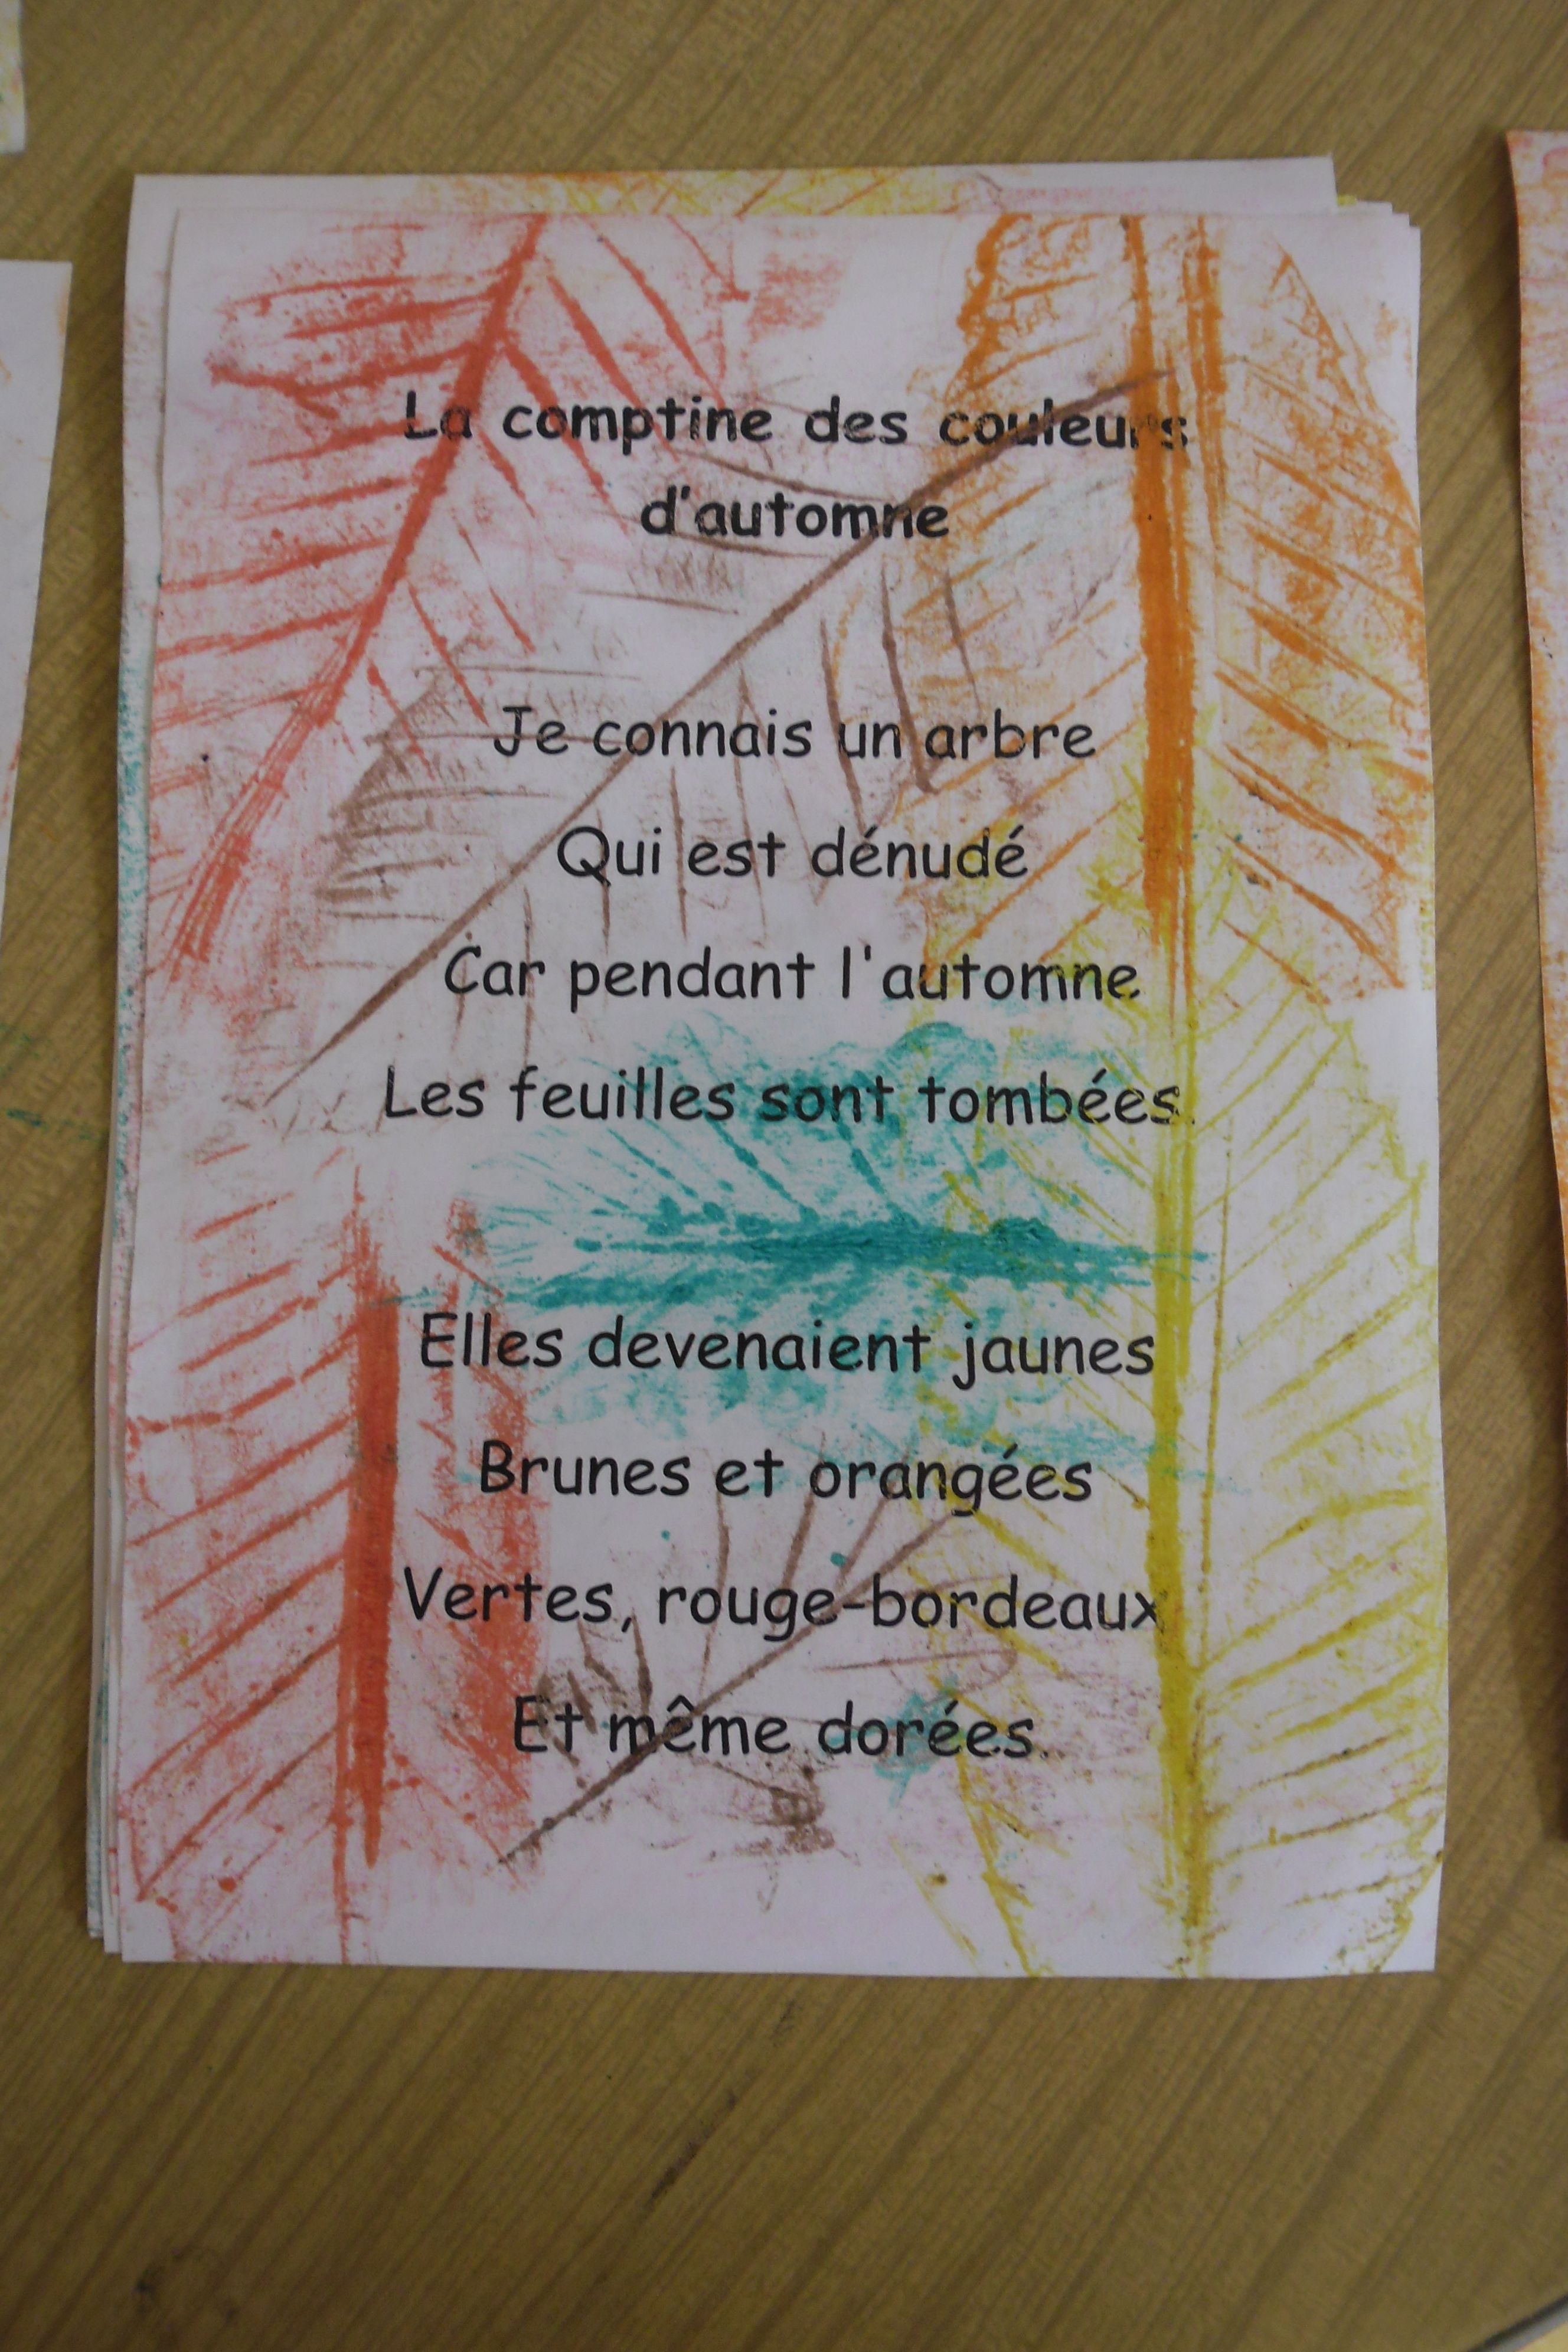 La comptine des couleurs
d'automne
Je connais un arbre
Qui est dénudé
Car pendant l'automne
Les feuilles sont tombées.
Elles devenaient jaunes
Brunes et orangées
Vertes, rouge-bordeaux
Et même dorées.